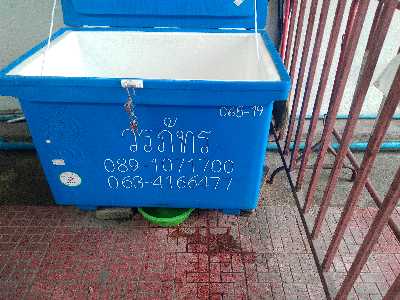 065-19
วรภัทร
089-1071700
063-4166477